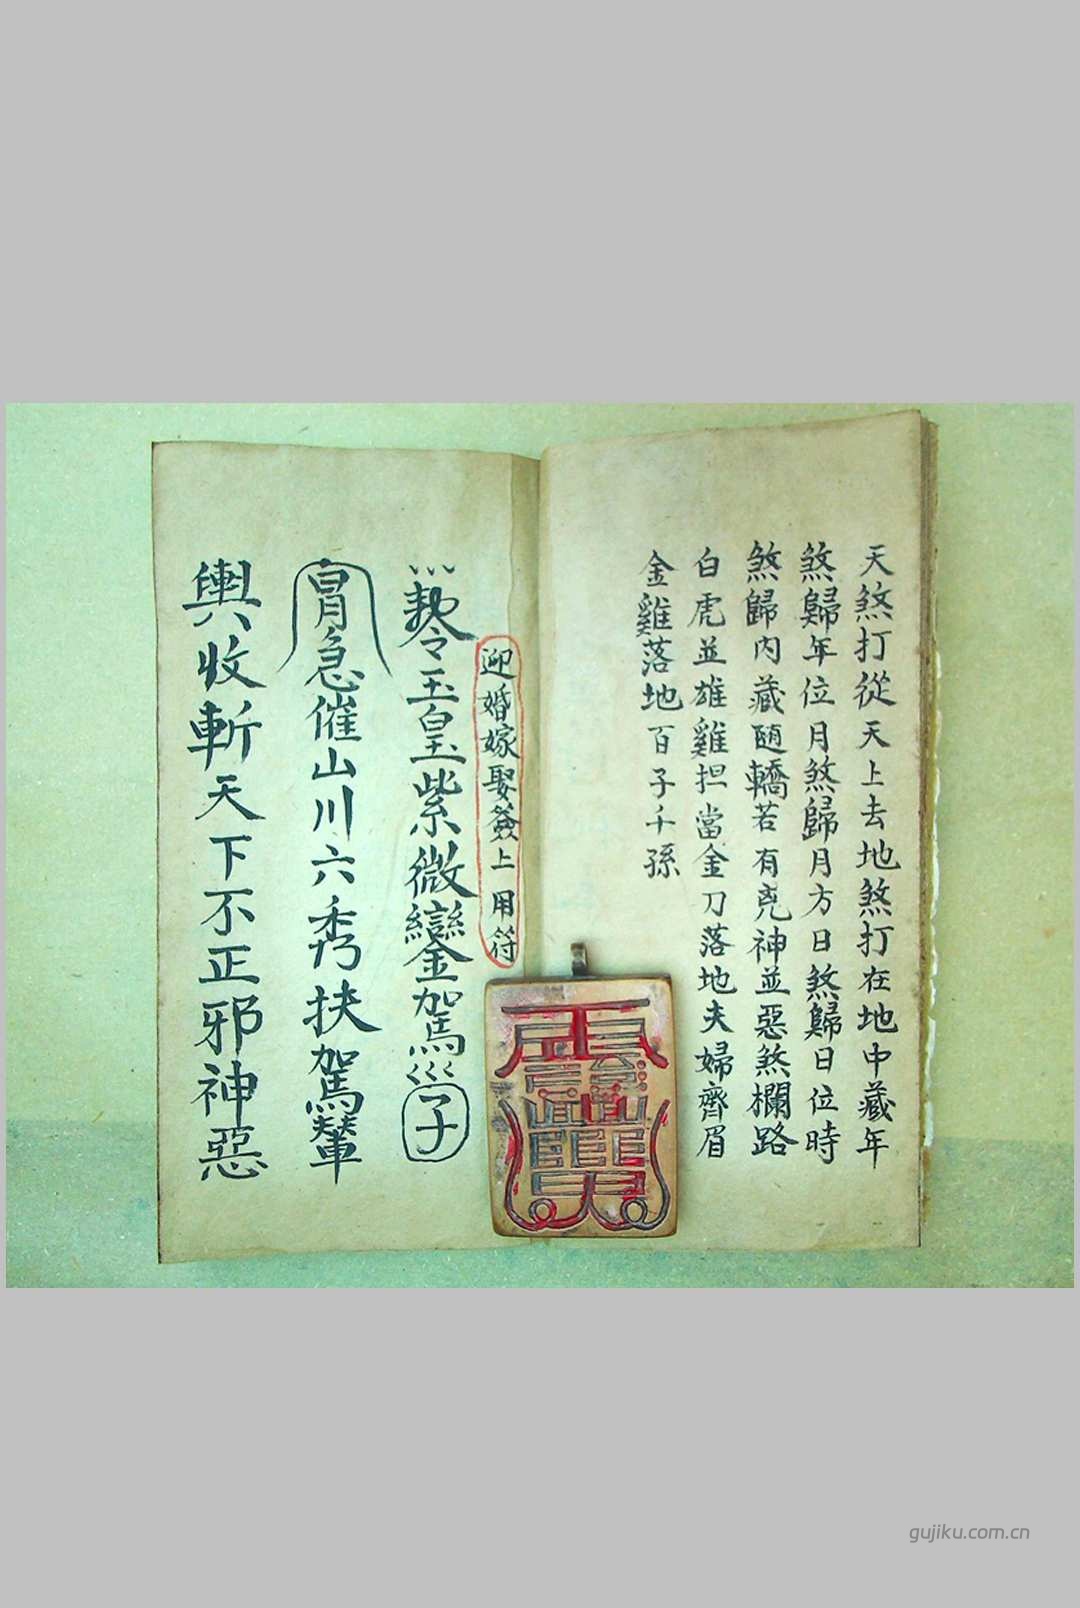 天煞打從天上去地煞打在地中藏年
煞歸年位月煞歸月方日煞歸日位時
煞歸内藏随轎若有兇神並惡煞欄路
白虎並雄雞担當金刀落地夫婦齊眉
金雞落地百子千孫
迎婚嫁娶簽上用符
令玉皇紫微鑾駕巛子
急催山川六秀扶駕輦
輿收斬天下不正邪神惡
gujiku.com.cn